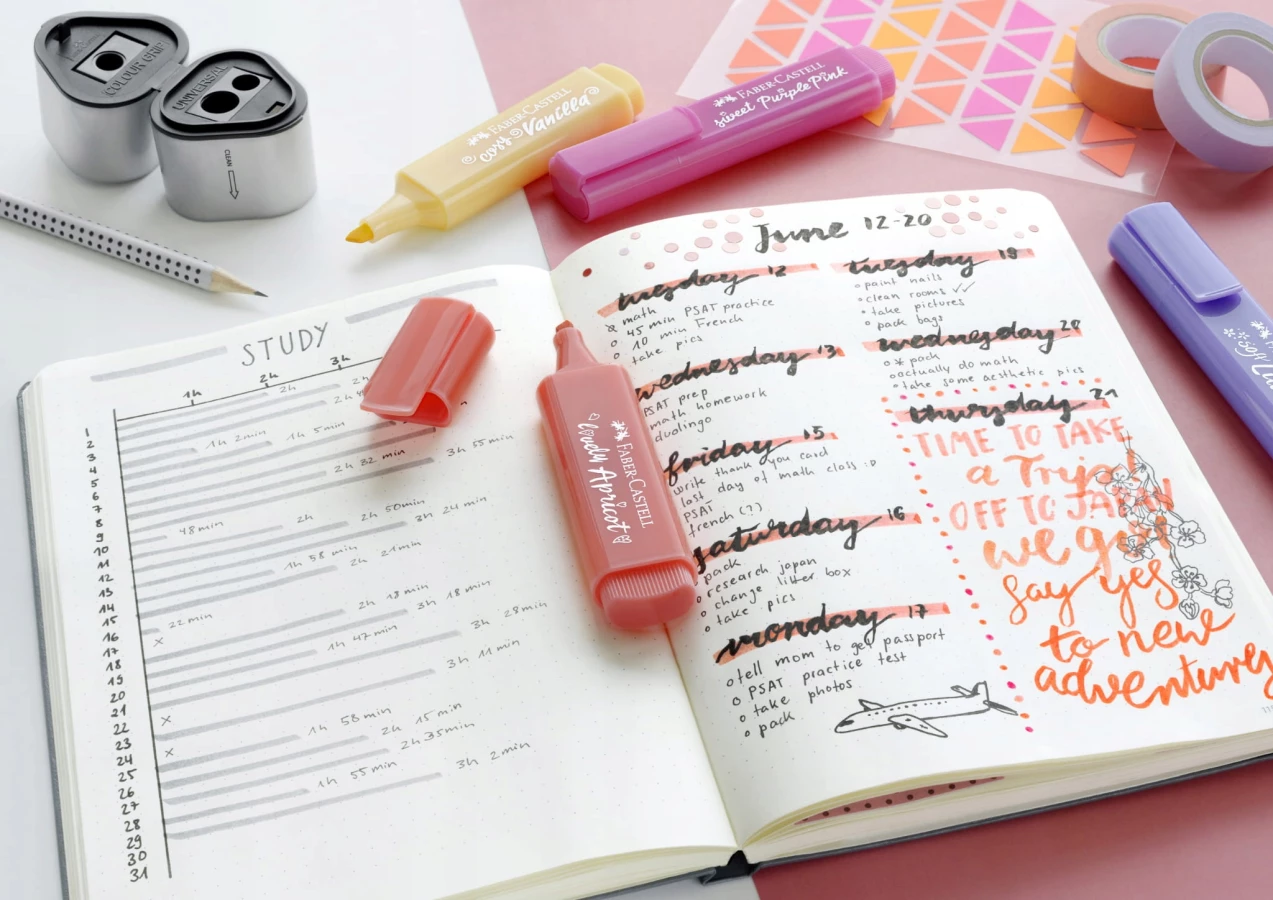 COLOUR GRIP
UNIVERSAL
CLEAN
FABER-CASTELL
cosy Vanilla
FABER-CASTELL
sweet Purple Pink
FABER-CASTELL
lovely Apricot
STUDY
1h
2h
3h
1
2
3
4
5
6
7
8
9
10
11
12
13
14
15
16
17
18
19
20
21
22
23
24
25
26
27
28
29
30
31
2h
2h
1h 2min
1h 5min
2h
2h 32 min
3h 55 min
48 min
2h
2h 50min
3h 24 min
1h 58 min
2h 21min
x 22 min
2h 18 min
3h 18 min
1h 47 min
3h 28 min
3h 11 min
x
1h 58 min
x
2h 15 min
2h 35min
1h 55 min
3h 2 min
June 12-20
tuesday 12
math
45 min PSAT practice
10 min French
take pics
wednesday 13
PSAT prep
math homework
duolingo
friday 15
write thank you card
last day of math class :D
PSAT
french (?)
saturday 16
pack
research japan
change litter box
take pics
monday 17
tell mom to get passport
PSAT practice test
take photos
pack
tuesday 19
paint nails
clean rooms ✓✓
take pictures
pack bags
wednesday 20
* pack
actually do math
take some aesthetic pics
thursday 21
TIME TO TAKE
a Trip!
OFF TO JAPAN
we go!
say yes
to new
adventures